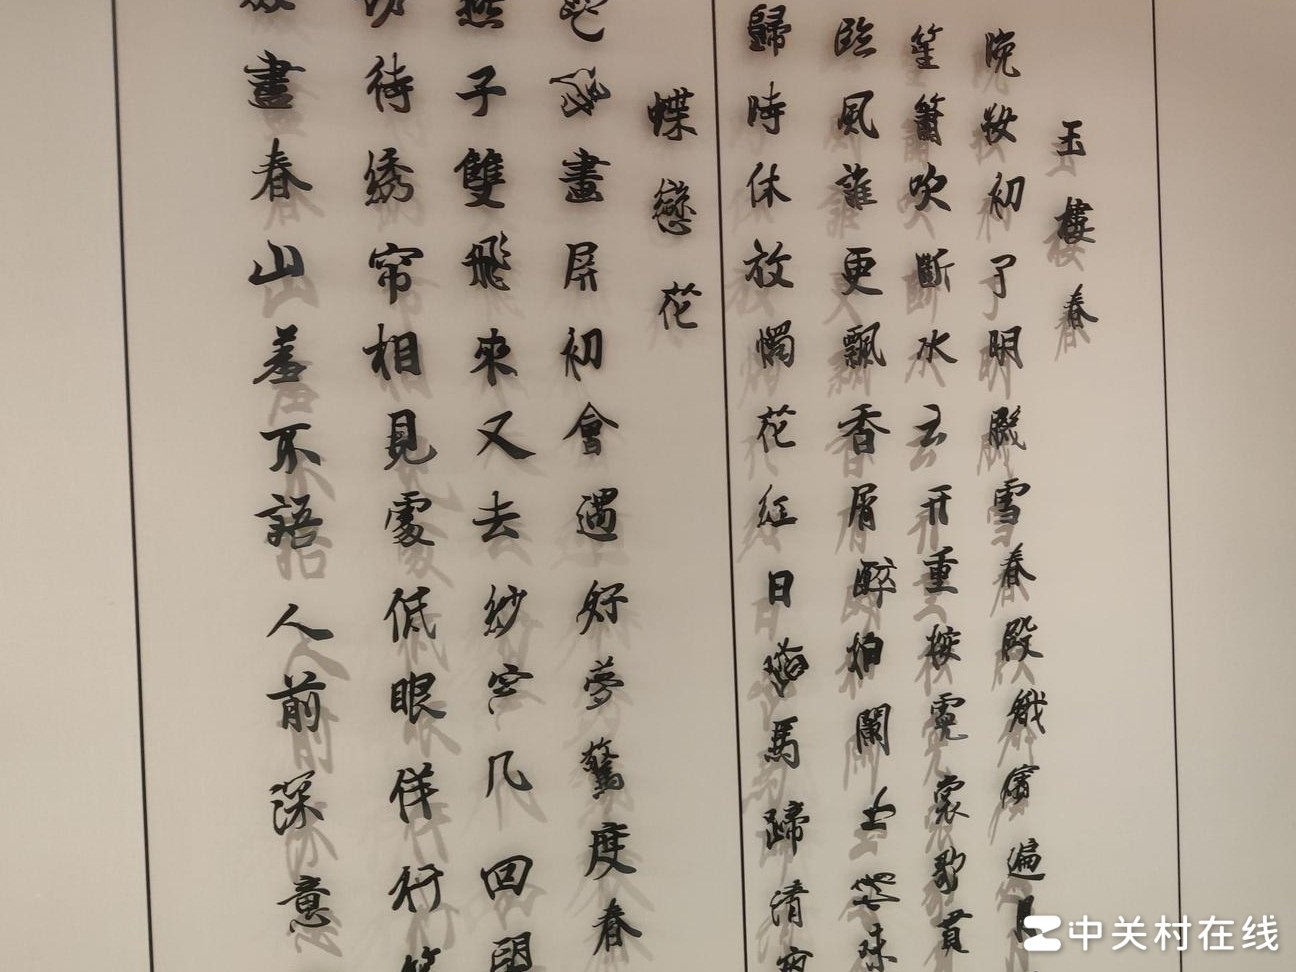 玉樓春
晚妝初了明肌雪春殿娥嬪遍
笙簫吹斷水云开重按霓裳歌貫
臨風誰更飄香屑醉拍闌情味
歸時休放燭花紅日踏馬蹄清夜
蝶戀花
畫屏初會遇好夢驚度春
燕子雙飛來又去紗窗几回
待綉帘相見處低眼佯行
畫春山羞不語人前深意
中关村在线